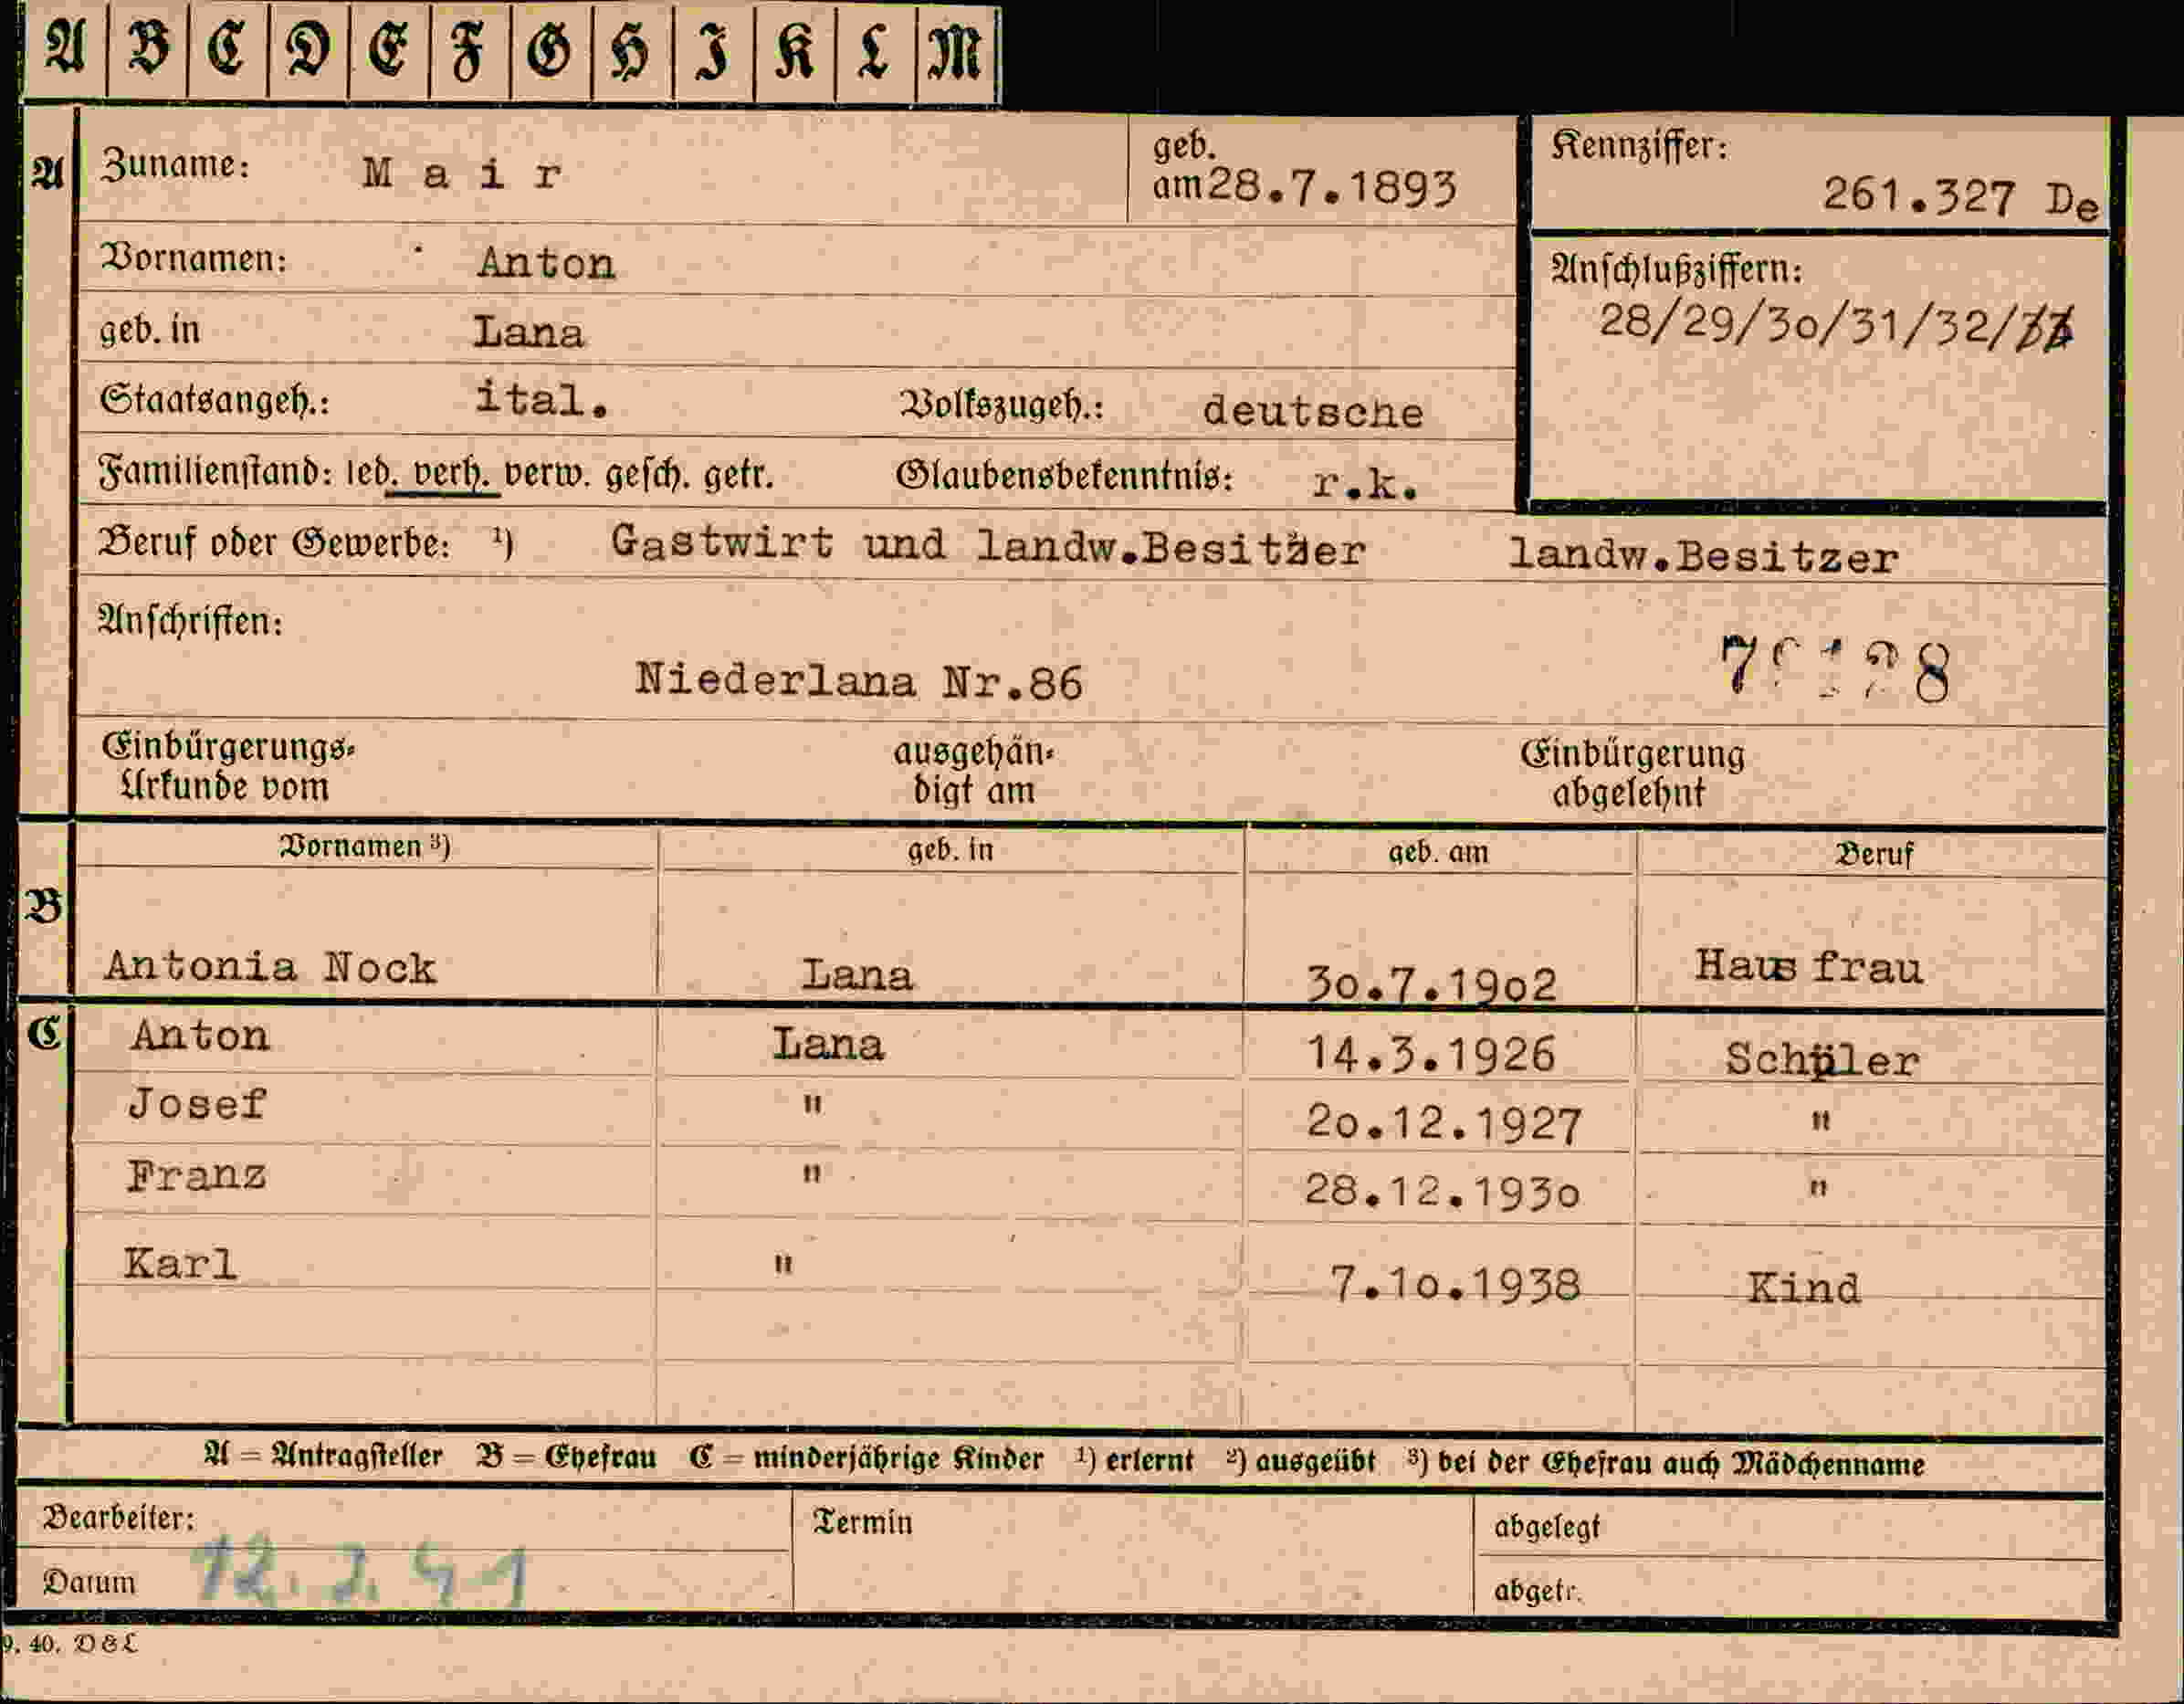 A B C D E F G H I K L M
A Zuname: Mair geb. am 28.7.1893
Kennziffer: 261.327 De
Vornamen: Anton
Anschlußziffern:
28/29/30/31/32/
geb. in Lana
Staatsangeh.: ital. Volkszugeh.: deutsche
Familienstand: led. verh. verw. gesch. getr. Glaubensbekenntnis: r.k.
Beruf oder Gewerbe: ¹) Gastwirt und landw.Besitzer landw.Besitzer
Anschriften:
Niederlana Nr.86
Einbürgerungs-Urkunde vom ausgehän-digt am Einbürgerung abgelehnt
Vornamen ³) geb. in geb. am Beruf
B
Antonia Nock Lana 30.7.1902 Hausfrau
C Anton Lana 14.3.1926 Schüler
Josef " 20.12.1927 "
Franz " 28.12.1930 "
Karl " 7.10.1938 Kind
A = Antragsteller B = Ehefrau C = minderjährige Kinder ¹) erlernt ²) ausgeübt ³) bei der Ehefrau auch Mädchenname
Bearbeiter: Termin abgelegt
Datum abgetr.
9. 40. D&L